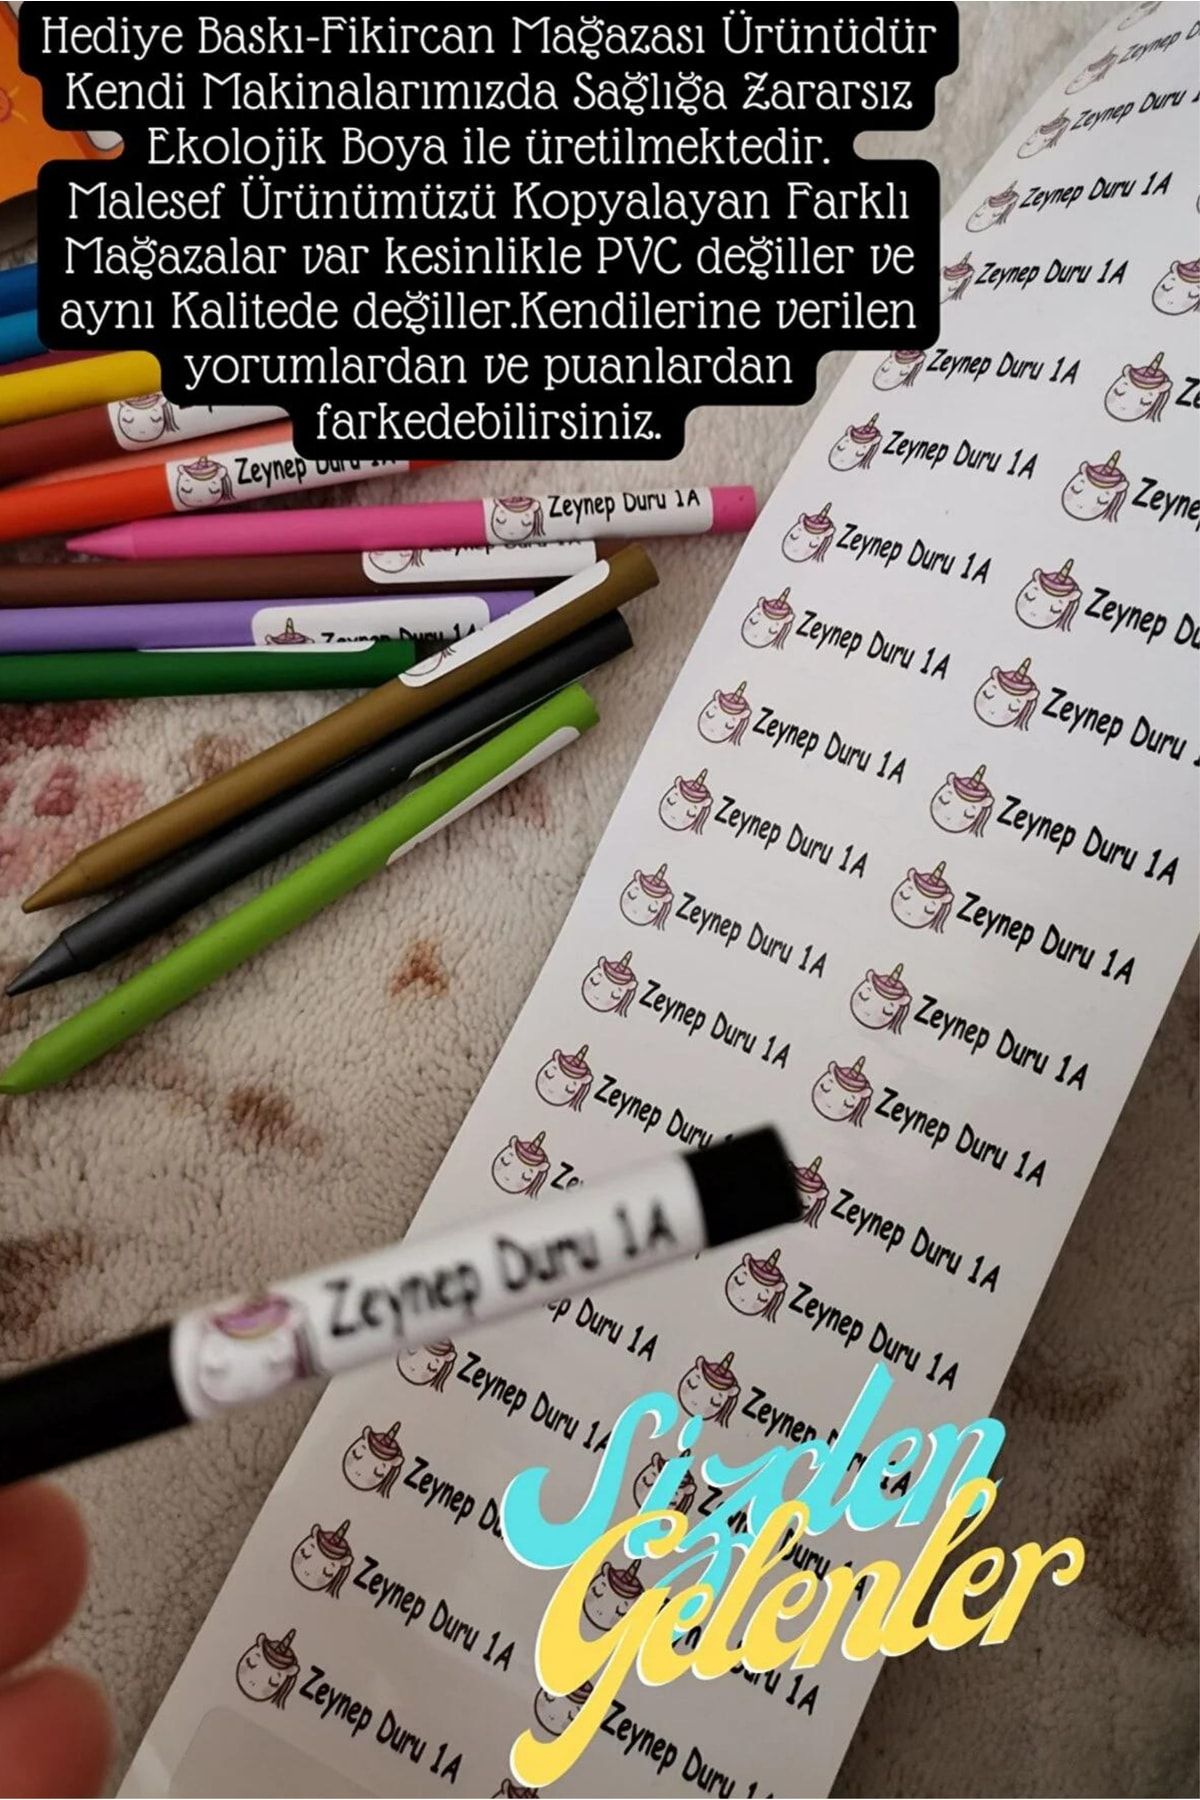 Hediye Baskı-Fikircan Mağazası Ürünüdür
Kendi Makinalarımızda Sağlığa Zararsız
Ekolojik Boya ile üretilmektedir.
Malesef Ürünümüzü Kopyalayan Farklı
Mağazalar var kesinlikle PVC değiller ve
aynı Kalitede değiller.Kendilerine verilen
yorumlardan ve puanlardan
farkedebilirsiniz.
Zeynep Duru
Zeynep Duru 1A
Zeynep Duru 1A
Zeynep Duru 1A
Zeynep Duru 1A
Zeynep Duru 1A
Zeynep Duru 1A
Zeynep Duru 1A
Zeynep Duru 1A
Zeynep Duru 1A
Zeynep Duru
Zeynep Duru 1A
Zeynep Duru 1A
Zeynep Duru 1A
Zeynep Duru 1A
Zeynep Duru 1A
Zeynep Duru 1A
Zeynep Duru 1A
Zeynep Duru 1A
Zeynep Duru
Zeynep Duru 1A
Zeynep Duru 1A
Zeynep Duru 1A
Duru 1A
Zeynep Duru 1A
Zeynep Duru 1A
Zeynep
Sizden
Gelenler
Zeynep Duru 1A
Zeynep Duru 1A
Zeynep Duru